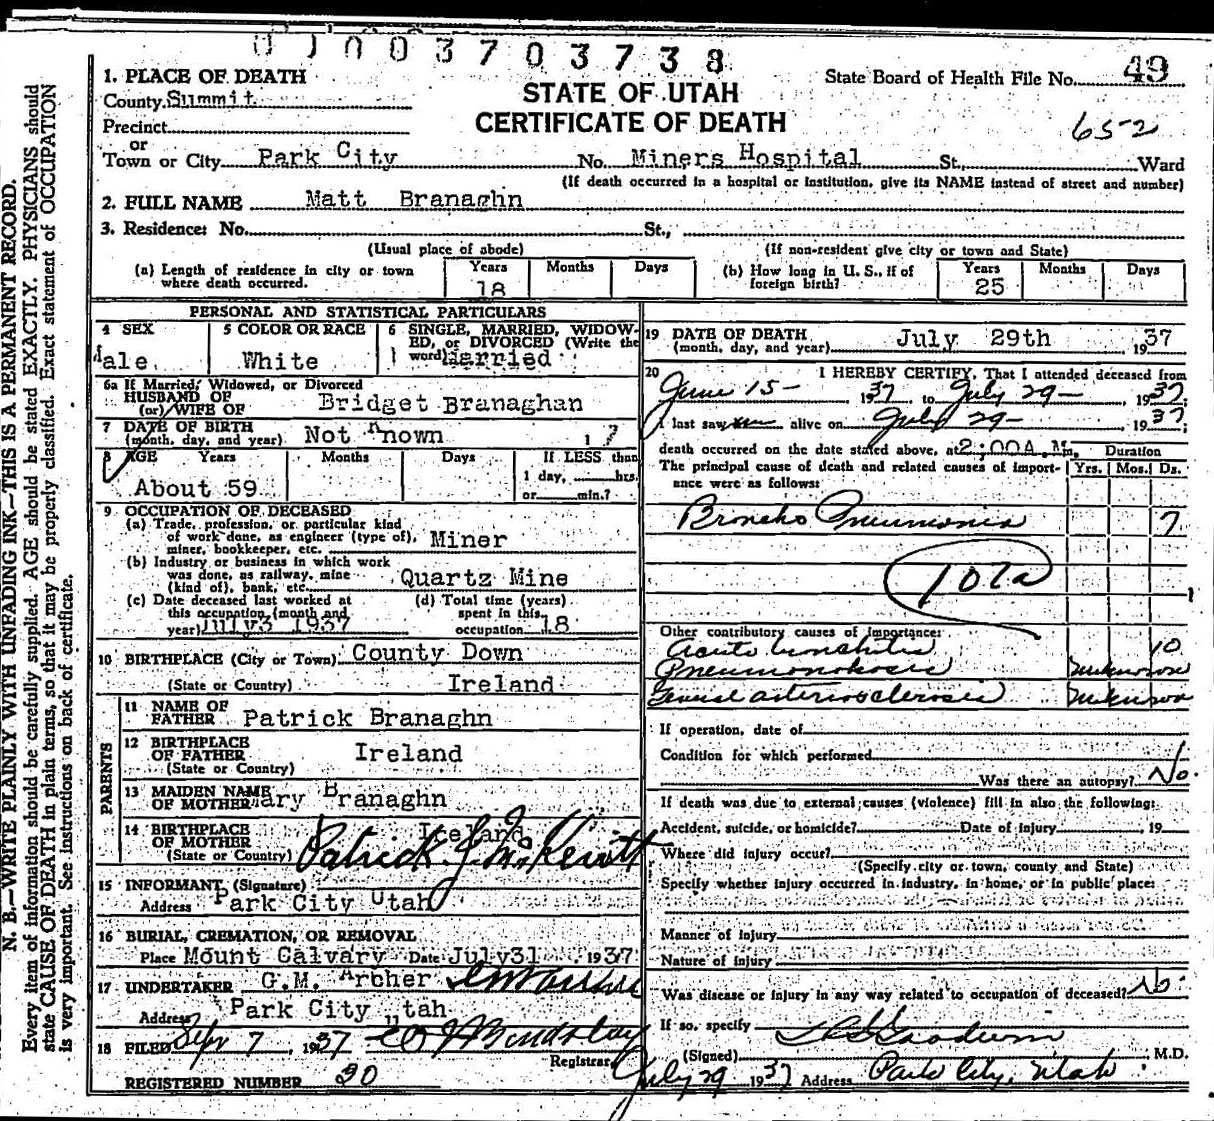 0 1 0 0 3 7 0 3 7 3 8
1. PLACE OF DEATH
County Summit
STATE OF UTAH
State Board of Health File No. 49
Precinct
CERTIFICATE OF DEATH
652
or
Town or City Park City No. Miners Hospital St., Ward
(If death occurred in a hospital or institution, give its NAME instead of street and number)
2. FULL NAME Matt Branaghn
3. Residence: No. St.,
(Usual place of abode) (If non-resident give city or town and State)
(a) Length of residence in city or town where death occurred. Years 18 Months Days
(b) How long in U. S., if of foreign birth? Years 25 Months Days
PERSONAL AND STATISTICAL PARTICULARS
4 SEX ale
5 COLOR OR RACE White
6 SINGLE, MARRIED, WIDOW-
ED, or DIVORCED (Write the
word) Married
6a If Married, Widowed, or Divorced
HUSBAND OF
(or) WIFE OF Bridget Branaghan
7 DATE OF BIRTH
(month, day, and year) Not nown 1 ?
8 AGE Years About 59 Months Days
If LESS than
1 day, hrs.
or min.?
9 OCCUPATION OF DECEASED
(a) Trade, profession, or particular kind
of work done, as engineer (type of),
miner, bookkeeper, etc. Miner
(b) Industry or business in which work
was done, as railway, mine
(kind of), bank, etc. Quartz Mine
(c) Date deceased last worked at
this occupation (month and
year) July3 1937
(d) Total time (years)
spent in this
occupation 18
10 BIRTHPLACE (City or Town) County Down
(State or Country) Ireland
PARENTS
11 NAME OF
FATHER Patrick Branaghn
12 BIRTHPLACE
OF FATHER Ireland
(State or Country)
13 MAIDEN NAME
OF MOTHER ary Branaghn
14 BIRTHPLACE
OF MOTHER Iceland
(State or Country)
15 INFORMANT (Signature) Patrick J.
Address Park City Utah
16 BURIAL, CREMATION, OR REMOVAL
Place Mount Calvary Date July31 1937
17 UNDERTAKER G.M. Archer
Address Park City Utah
18 FILED Sep 7, 1937
Registrar
REGISTERED NUMBER 30
19 DATE OF DEATH
(month, day, and year) July 29th 1937
20 I HEREBY CERTIFY, That I attended deceased from
June 15- 1937 to July 29-, 1937;
I last saw him alive on July 29-, 1937;
death occurred on the date stated above, at 2:00A.M.m.
The principal cause of death and related causes of import-
ance were as follows:
Duration
Yrs. Mos. Ds.
Broncho Pneumonia 7
107a
Other contributory causes of importance:
Acute bronchitis 10
Pneumonokosis unknown
General arteriosclerosis unknown
If operation, date of
Condition for which performed
Was there an autopsy? No.
If death was due to external causes (violence) fill in also the following:
Accident, suicide, or homicide? Date of injury, 19
Where did injury occur?
(Specify city or town, county and State)
Specify whether injury occurred in industry, in home, or in public place:
Manner of injury
Nature of injury
Was disease or injury in any way related to occupation of deceased? No.
If so, specify
(Signed) Goodwin M.D.
July 29 1937 Address Park City, Utah
N. B.—WRITE PLAINLY WITH UNFADING INK—THIS IS A PERMANENT RECORD.
Every item of information should be carefully supplied. AGE should be stated EXACTLY. PHYSICIANS should
state CAUSE OF DEATH in plain terms, so that it may be properly classified. Exact statement of OCCUPATION
is very important. See instructions on back of certificate.